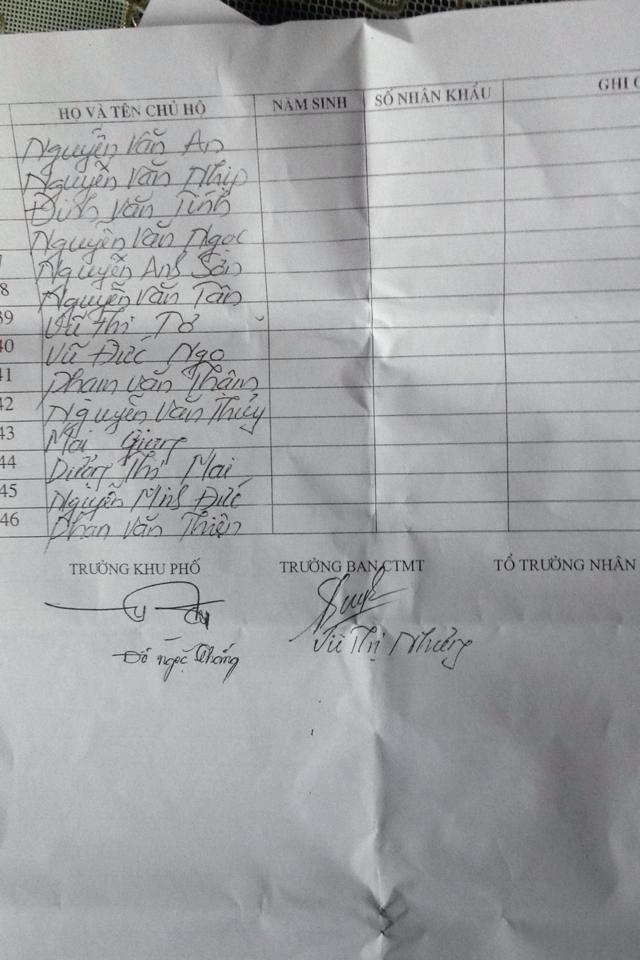 HỌ VÀ TÊN CHỦ HỘ NĂM SINH SỐ NHÂN KHẨU GHI
Nguyễn Văn An
Nguyễn Văn Nhíp
Đinh Văn Tính
Nguyễn Văn Ngọc
Nguyễn Anh Sản
8 Nguyễn Văn Tân
39 Vũ Thị Tơ
40 Vũ Đức Ngo
41 Phạm Văn Thâm
42 Nguyễn Văn Thủy
43 Mai Giang
44 Dương Thị Mai
45 Nguyễn Minh Đức
46 Phan Văn Thiện
TRƯỞNG KHU PHỐ TRƯỞNG BAN CTMT TỔ TRƯỞNG NHÂN
Đỗ Ngọc Thắng Vũ Thị Nhường